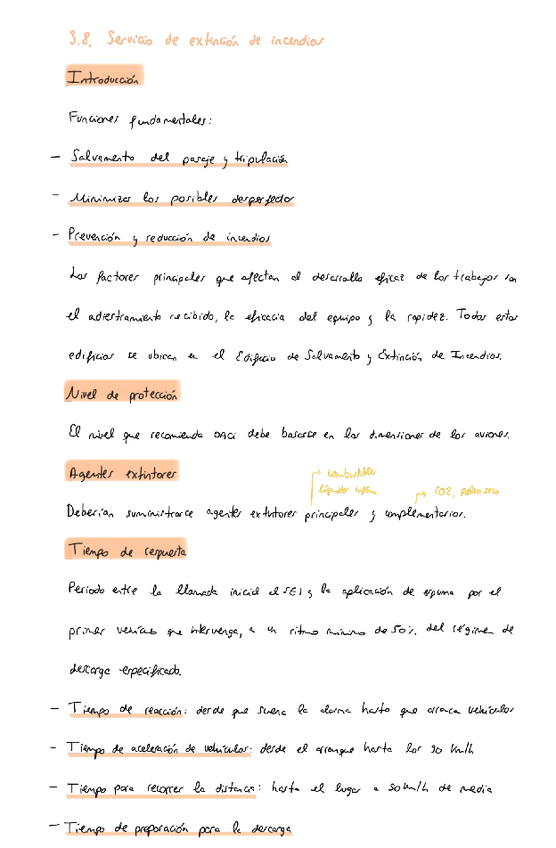 3.8. Servicio de extinción de incendios
Introducción
Funciones fundamentales:
- Salvamento del pasaje y tripulación
- Minimizar los posibles desperfectos
- Prevención y reducción de incendios
Los factores principales que afectan al desarrollo eficaz de los trabajos son
el adiestramiento recibido, la eficacia del equipo y la rapidez. Todos estos
edificios se ubican en el Edificio de Salvamento y Extinción de Incendios.
Nivel de protección
El nivel que recomienda OACI debe basarse en las dimensiones de los aviones.
Agentes extintores
combustibles
líquidos CO2, polvo seco
Deberían suministrarse agentes extintores principales y complementarios.
Tiempo de respuesta
Periodo entre la llamada inicial al SEI y la aplicación de espuma por el
primer vehículo que intervenga, a un ritmo mínimo de 50% del régimen de
descarga especificado.
- Tiempo de reacción: desde que suena la alarma hasta que arranca vehículos
- Tiempo de aceleración de vehículos: desde el arranque hasta los 90 km/h
- Tiempo para recorrer la distancia: hasta el lugar a 50 km/h de media
- Tiempo de preparación para la descarga